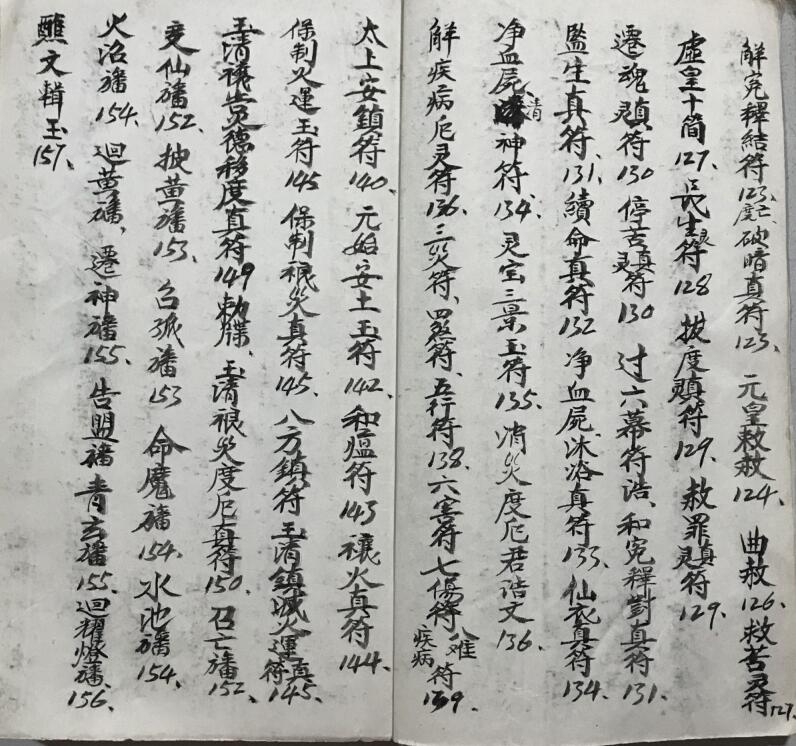 解冤释結符123、度亡破暗真符123、元皇敕赦124、曲赦126、救苦灵符127、
虛皇十简127、長生灵符128、拔度真符129、赦罪真灵符129、
遷魂灵真符130停苦真灵符130过六幕符诰、和冤釋對真符131、
監生真符131、續命真符132净血屍沐浴真符133、仙衣真符134、
净血屍清神符134、灵宝三景玉符135、消災度厄君诰文136、
解疾病厄灵符136、三災符、四煞符、五行符138、六害符七傷符八难疾病符139、
太上安鎮符140、元始安土玉符142、和瘟符143禳火真符144、
保制火運玉符145保制禳災真符145、八方鎮符玉清鎮滅火運真符145、
玉清禳德移度真符149勅牒、玉清禳災度厄真符150、召亡旛152、
变仙旛152、披黄旛153、召孤旛153命魔旛154、水池旛154、
火沼旛154、迴黄旛、遷神旛155、告盟旛青玄旛155、迴耀燈旛156、
醮文輯玉157、